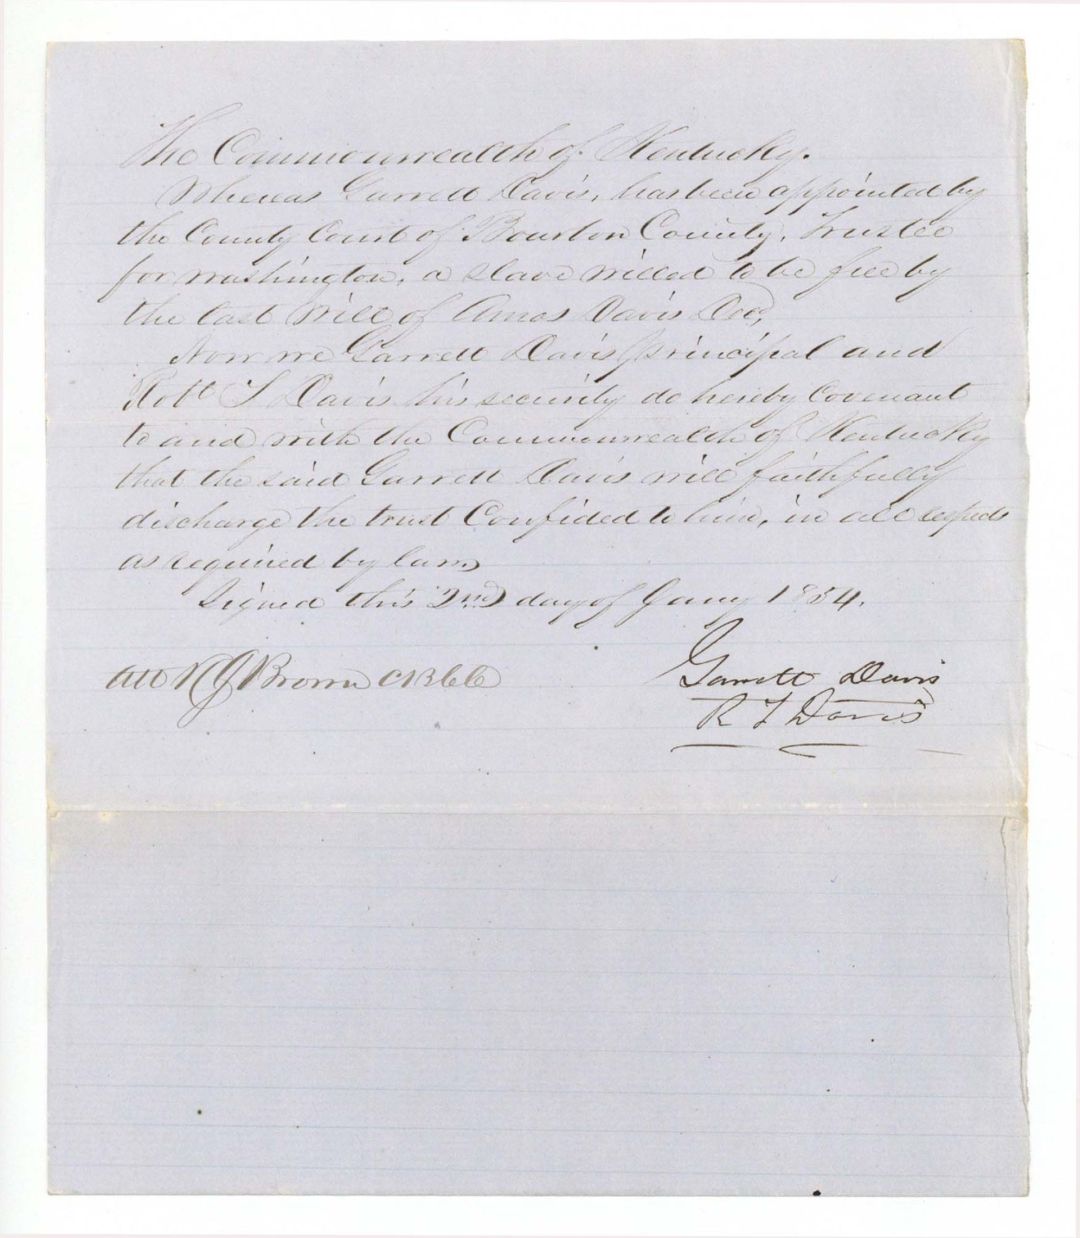 The Commonwealth of Kentucky.
Whereas Garrett Davis, has been appointed by
the County Court of Bourbon County, Trustee
for Washington, a slave willed to be free by
the last Will of Amos Davis Decd,
Now we Garrett Davis principal and
Robt T Davis his security do hereby Covenant
to and with the Commonwealth of Kentucky
that the said Garrett Davis will faithfully
discharge the trust Confided to him, in all respects
as required by law,
Signed this 2nd day of Jany 1854.
Att R J Brown CBCC
Garrett Davis
R T Davis